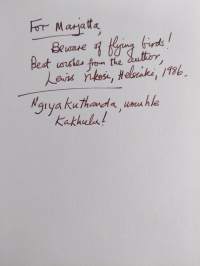 For Marjatta,
Beware of flying birds!
Best wishes from the author,
Lewis Nkosi, Helsinki, 1986.
Ngiyakuthanda, umuhle
Kakhulu!